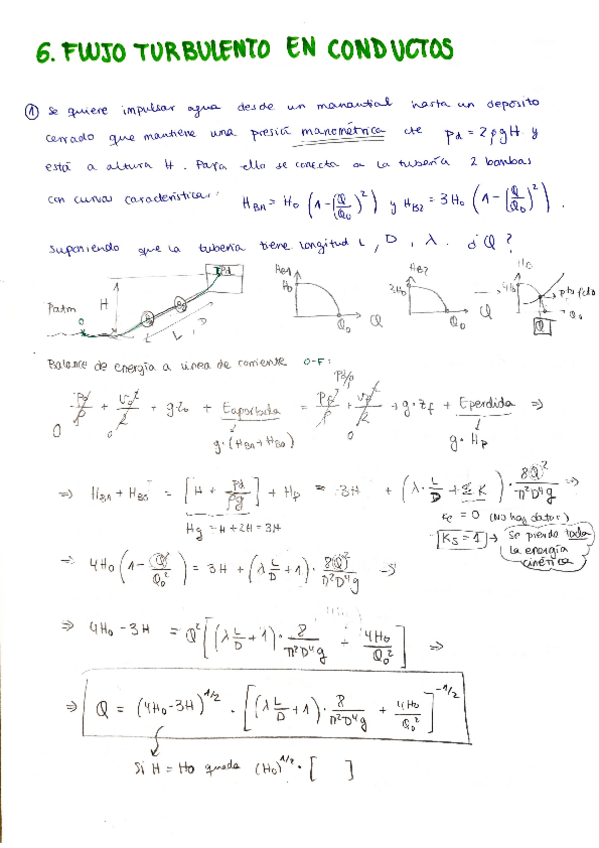 6. FLUJO TURBULENTO EN CONDUCTOS
① Se quiere impulsar agua desde un manantial hasta un depósito
cerrado que mantiene una presió manométrica cte pd = 2ρgH y
está a altura H. Para ello se conecta a la tubería 2 bombas
con curvas características: HB1 = H0 (1-(Q/Q0)²) y HB2 = 3H0 (1-(Q/Q0)²).
Suponiendo que la tubería tiene longitud L, D, λ. ¿Q?
Patm H L, D Pd
HB1 H0 Q0 Q
HB2 3H0 Q0 Q
HB 4H0 pto fcto Q0 Q
Balance de energía a línea de corriente O-F:
P0/ρ + v0²/2 + gz0 + Eaportada = Pf/ρ + vf²/2 + g·zf + Eperdida ⇒
0 0 g·(HB1+HB2) Pd/ρ 0 g·Hp
⇒ HB1 + HB2 = [H + pd/ρg] + Hp = 3H + (λ·L/D + Σ K)·8Q²/π²D⁴g ⇒
Hg = H + 2H = 3H
Ke = 0 (No hay datos)
Ks = 1 → Se pierde toda
la energía
cinética
⇒ 4H0 (1 - Q²/Q0²) = 3H + (λ L/D + 1)·8Q²/π²D⁴g ⇒
⇒ 4H0 - 3H = Q² [(λ L/D + 1)·8/π²D⁴g + 4H0/Q0²] ⇒
⇒ Q = (4H0-3H)^1/2 · [(λ L/D + 1)·8/π²D⁴g + 4H0/Q0²]^-1/2
Si H = H0 queda (H0)^1/2 · [ ]